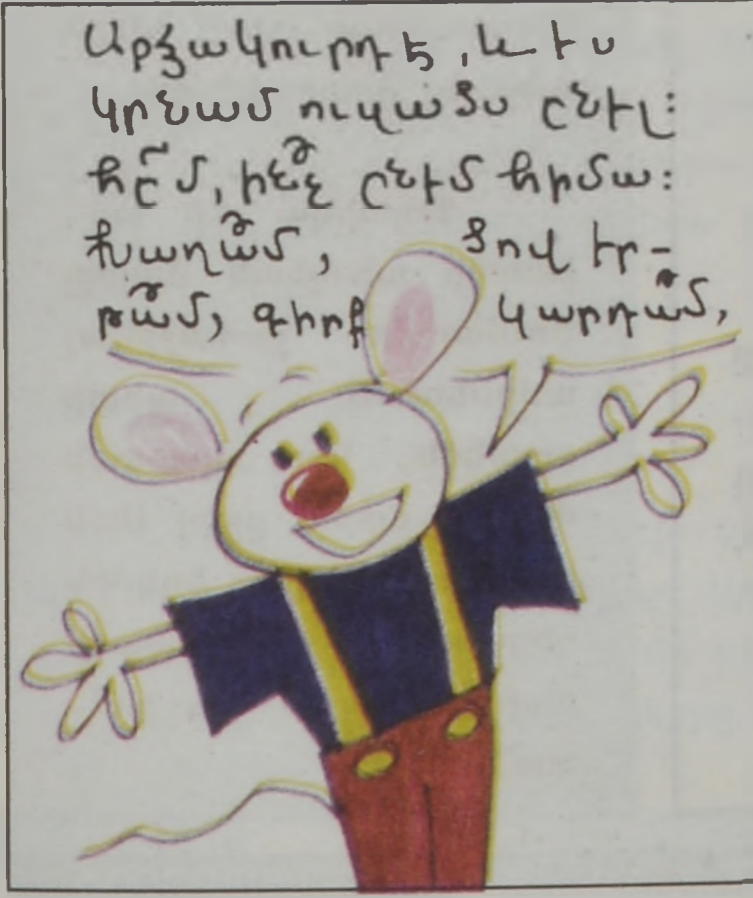 Արձակուրդ է, և ես
կրնամ ուզածս ընել:
հը՜մ, ի՞նչ ընեմ հիմա:
Խաղա՞մ, ծով եր-
թա՞մ, գիրք կարդա՞մ,